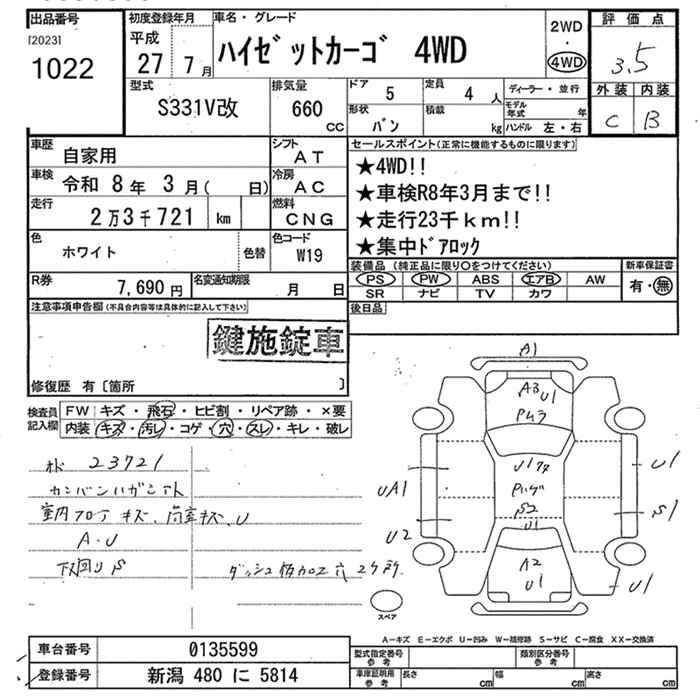 出品番号 初度登録年月 車名・グレード 2WD 評価点
[2023] 平成 ハイゼットカーゴ 4WD ・ 3.5
1022 27年 7月 4WD
型式 排気量 ドア 定員 ディーラー・並行 外装 内装
S331V改 660cc 5 4人 モデル年式 年 C B
形状 積載
バン kg ハンドル 左・右
車歴 自家用 シフト AT セールスポイント(正常に機能するものに限ります)
車検 令和 8年 3月( 日) 冷房 AC ★4WD!!
走行 2万3千721 km 燃料 CNG ★車検R8年3月まで!!
色 ホワイト 色替 色コード W19 ★走行23千km!!
★集中ドアロック
R券 7,690円 名変通知期限 月 日 装備品(純正品に限り○をつけてください) 新車保証書
PS PW ABS エアB AW 有・無
SR ナビ TV カワ
注意事項申告欄(不具合内容等は具体的に記入して下さい) 後日品
鍵施錠車
修復歴 有〔箇所 〕
検査員記入欄 FW キズ・飛石・ヒビ割・リペア跡・×要
内装 キズ・汚レ・コゲ・穴・スレ・キレ・破レ
A1
A3 U1
23721
カンバンハガシアト
室内フロアキズ、荷室キズ、U
A・U
下回りS
UA1
U2
U1
S1
S2
U1
A2
U1
U1
スペア
A-キズ E-エクボ U-凹み W-補修跡 S-サビ C-腐食 XX-交換済
車台番号 0135599 型式指定番号 参考 類別区分番号 参考
登録番号 新潟 480 に 5814 車庫証明用 参考 長さ cm 幅 cm 高さ cm